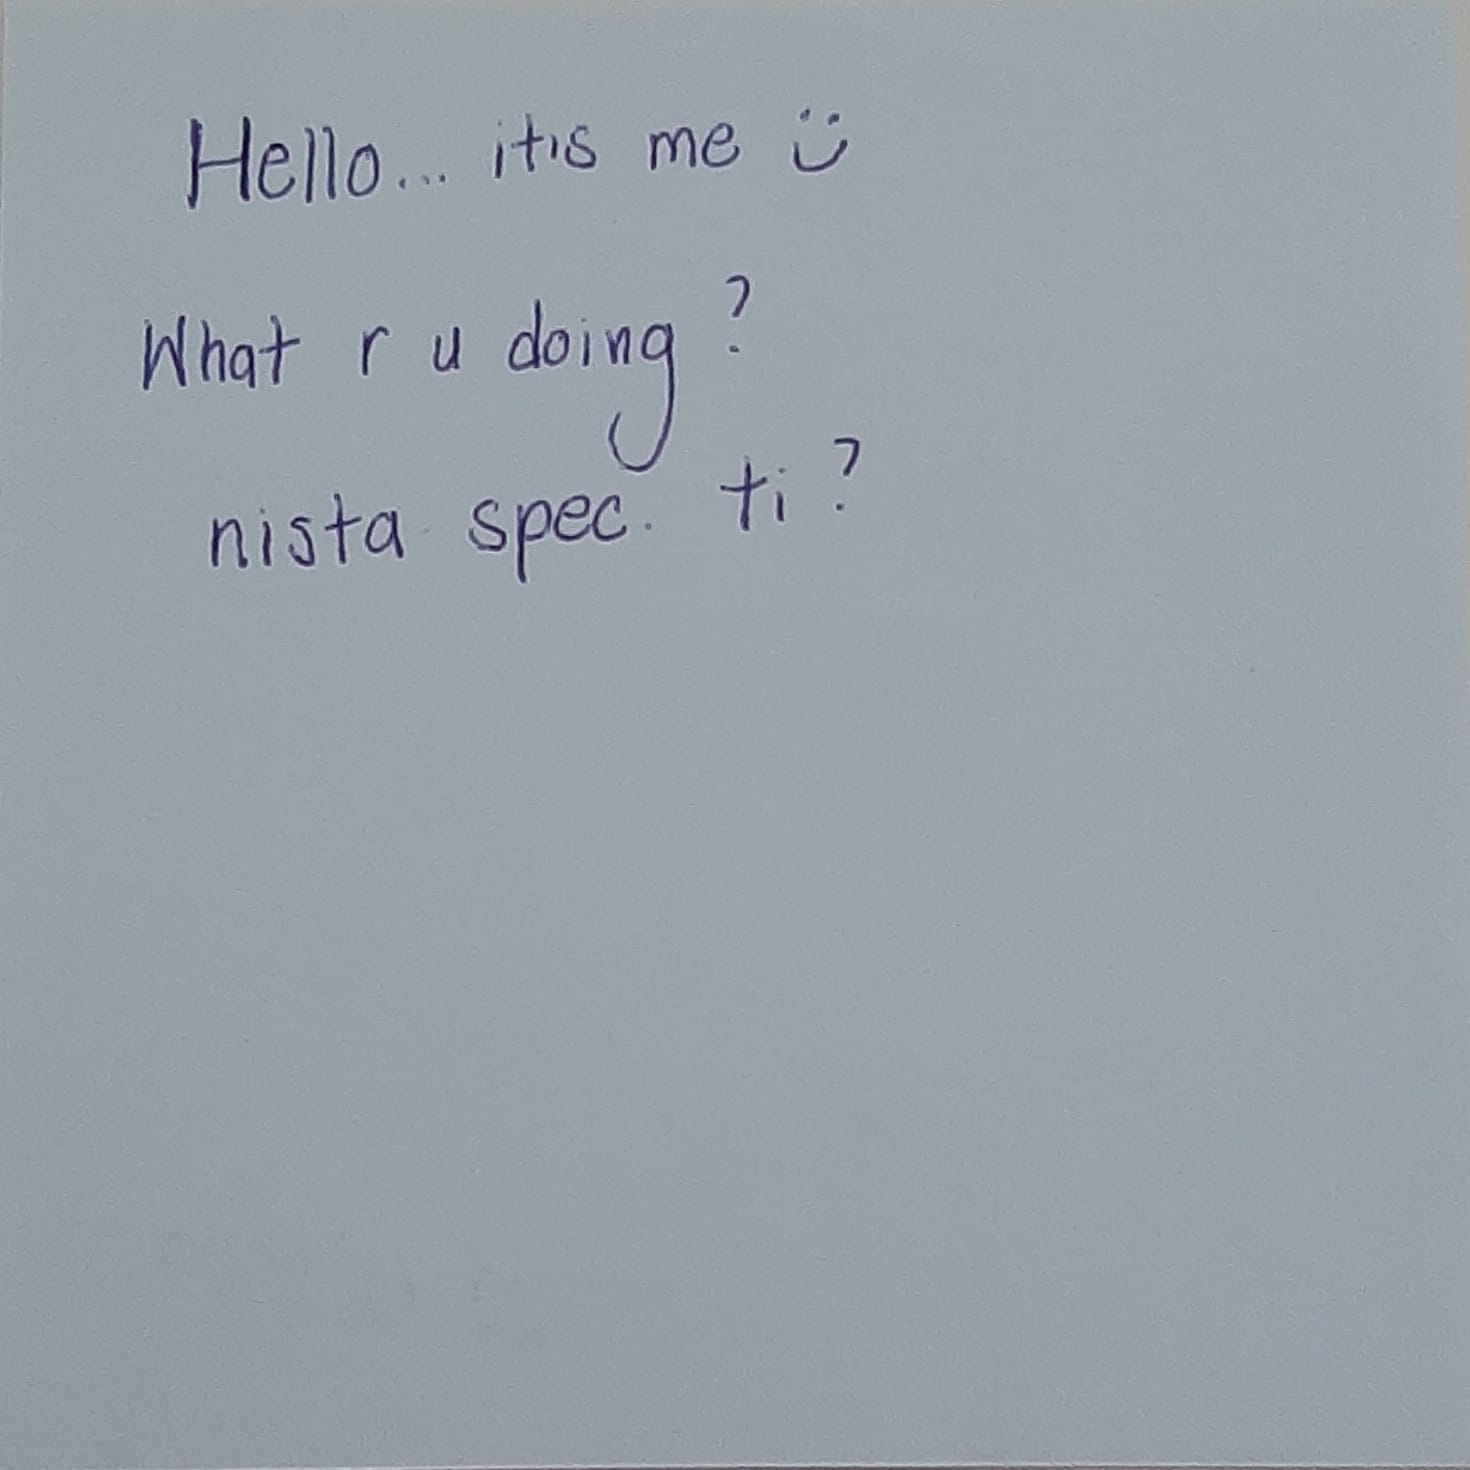 Hello... itis me ü
What r u doing?
nista spec. ti?